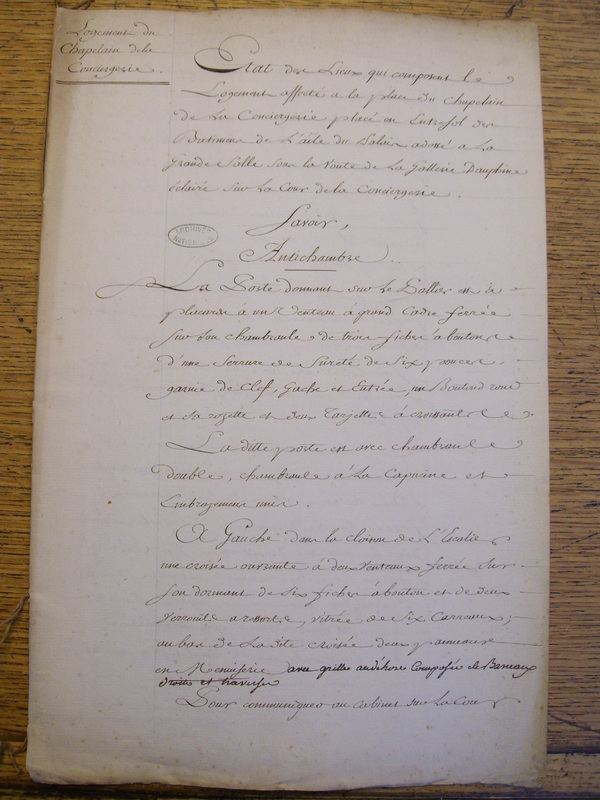 Logement du
Chapelain de la
Conciergerie.
Etat des Lieux qui composent le
Logement affecté a la place du chapelain
de La Conciergerie placé en Entresol des
Batimens de L'aile du Palais adossé a La
grande Salle sous la Voute de La Gallerie Dauphine
éclairé sur La Cour de la Conciergerie.
Savoir,
ARCHIVES
NATIONALES
Antichambre.
La Porte donnant sur Le Pallier est à
placards à un Venteau à grand Cadre ferrée
sur son chambranle, de trois fiches à boutons
d'une Serrure de Sureté de Six pouces,
garnie de Clef, Gache et Entrée, un Bouton rond
et sa rozette et deux Targettes à croissant
La ditte porte est avec chambranle
double, chambranle à La Capucine et
Embrazement unis.
A Gauche dans la cloison de L'Escalier
une croisée ouvrante à deux Venteaux ferrée sur
son dormant de six fiches à bouton et de deux
Verrouils a ressorts, vitrée de Six Carreaux;
au bas de La dite croisée deux panneaux
en Menuiserie avec grilles au déhors Composée de Bareaux
droits et travèrses
Pour communiquer au cabinet sur La Cour